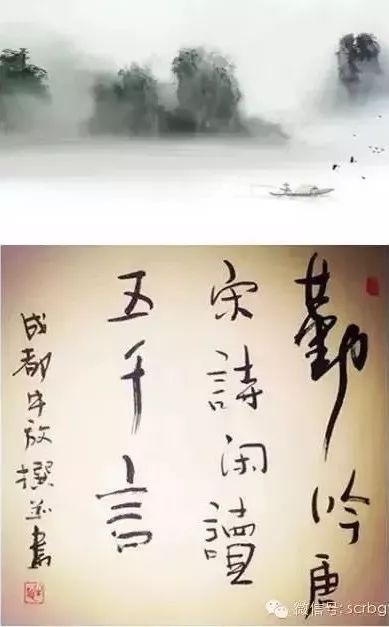 勤吟唐
宋詩闲讀
五千言
成都牛放撰并書
微信号: scrbg